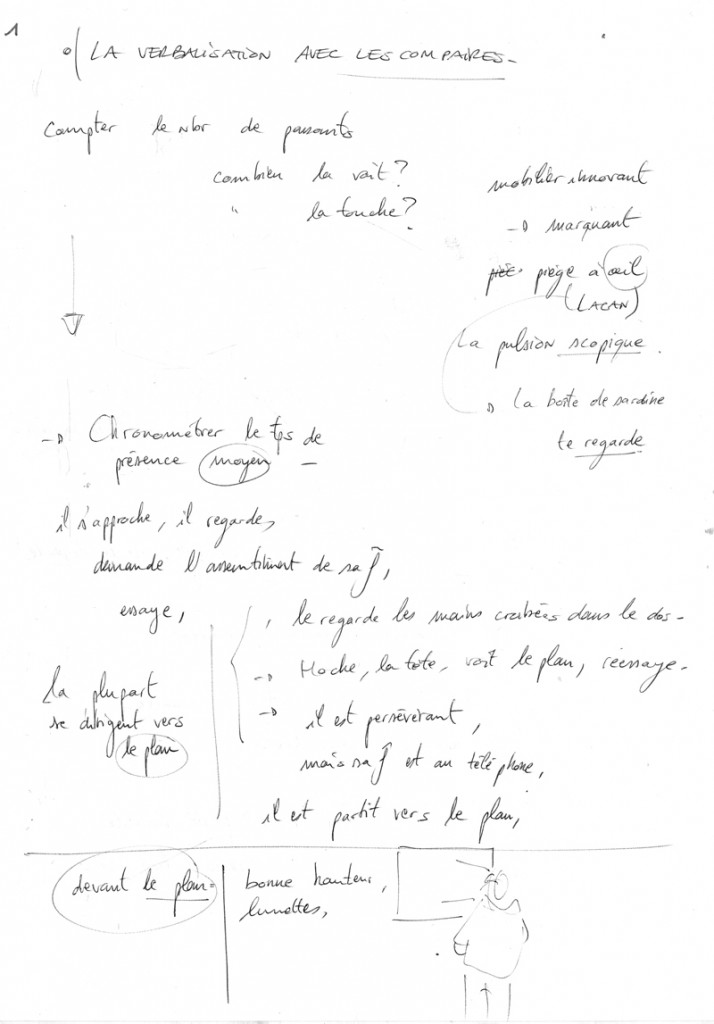 1
LA VERBALISATION AVEC LES COMPAIRES-
Compter le nbr de passants
combien la voit?
" la touche?
mobilier innovant
→ marquant
piège à œil
(LACAN)
la pulsion scopique.
→ la boîte de sardine
te regarde
→ Chronométrer le tps de
présence moyen -
il s'approche, il regarde,
demande l'assentiment de sa f,
essaye,
, le regarde les mains croisées dans le dos-
→ Hoche, la tête, voit le plan, réessaye-
→ il est persévérant,
mais sa f est au téléphone,
il est partit vers le plan,
la plupart
se dirigent vers
le plan
devant le plan-
bonne hauteur,
lunettes,